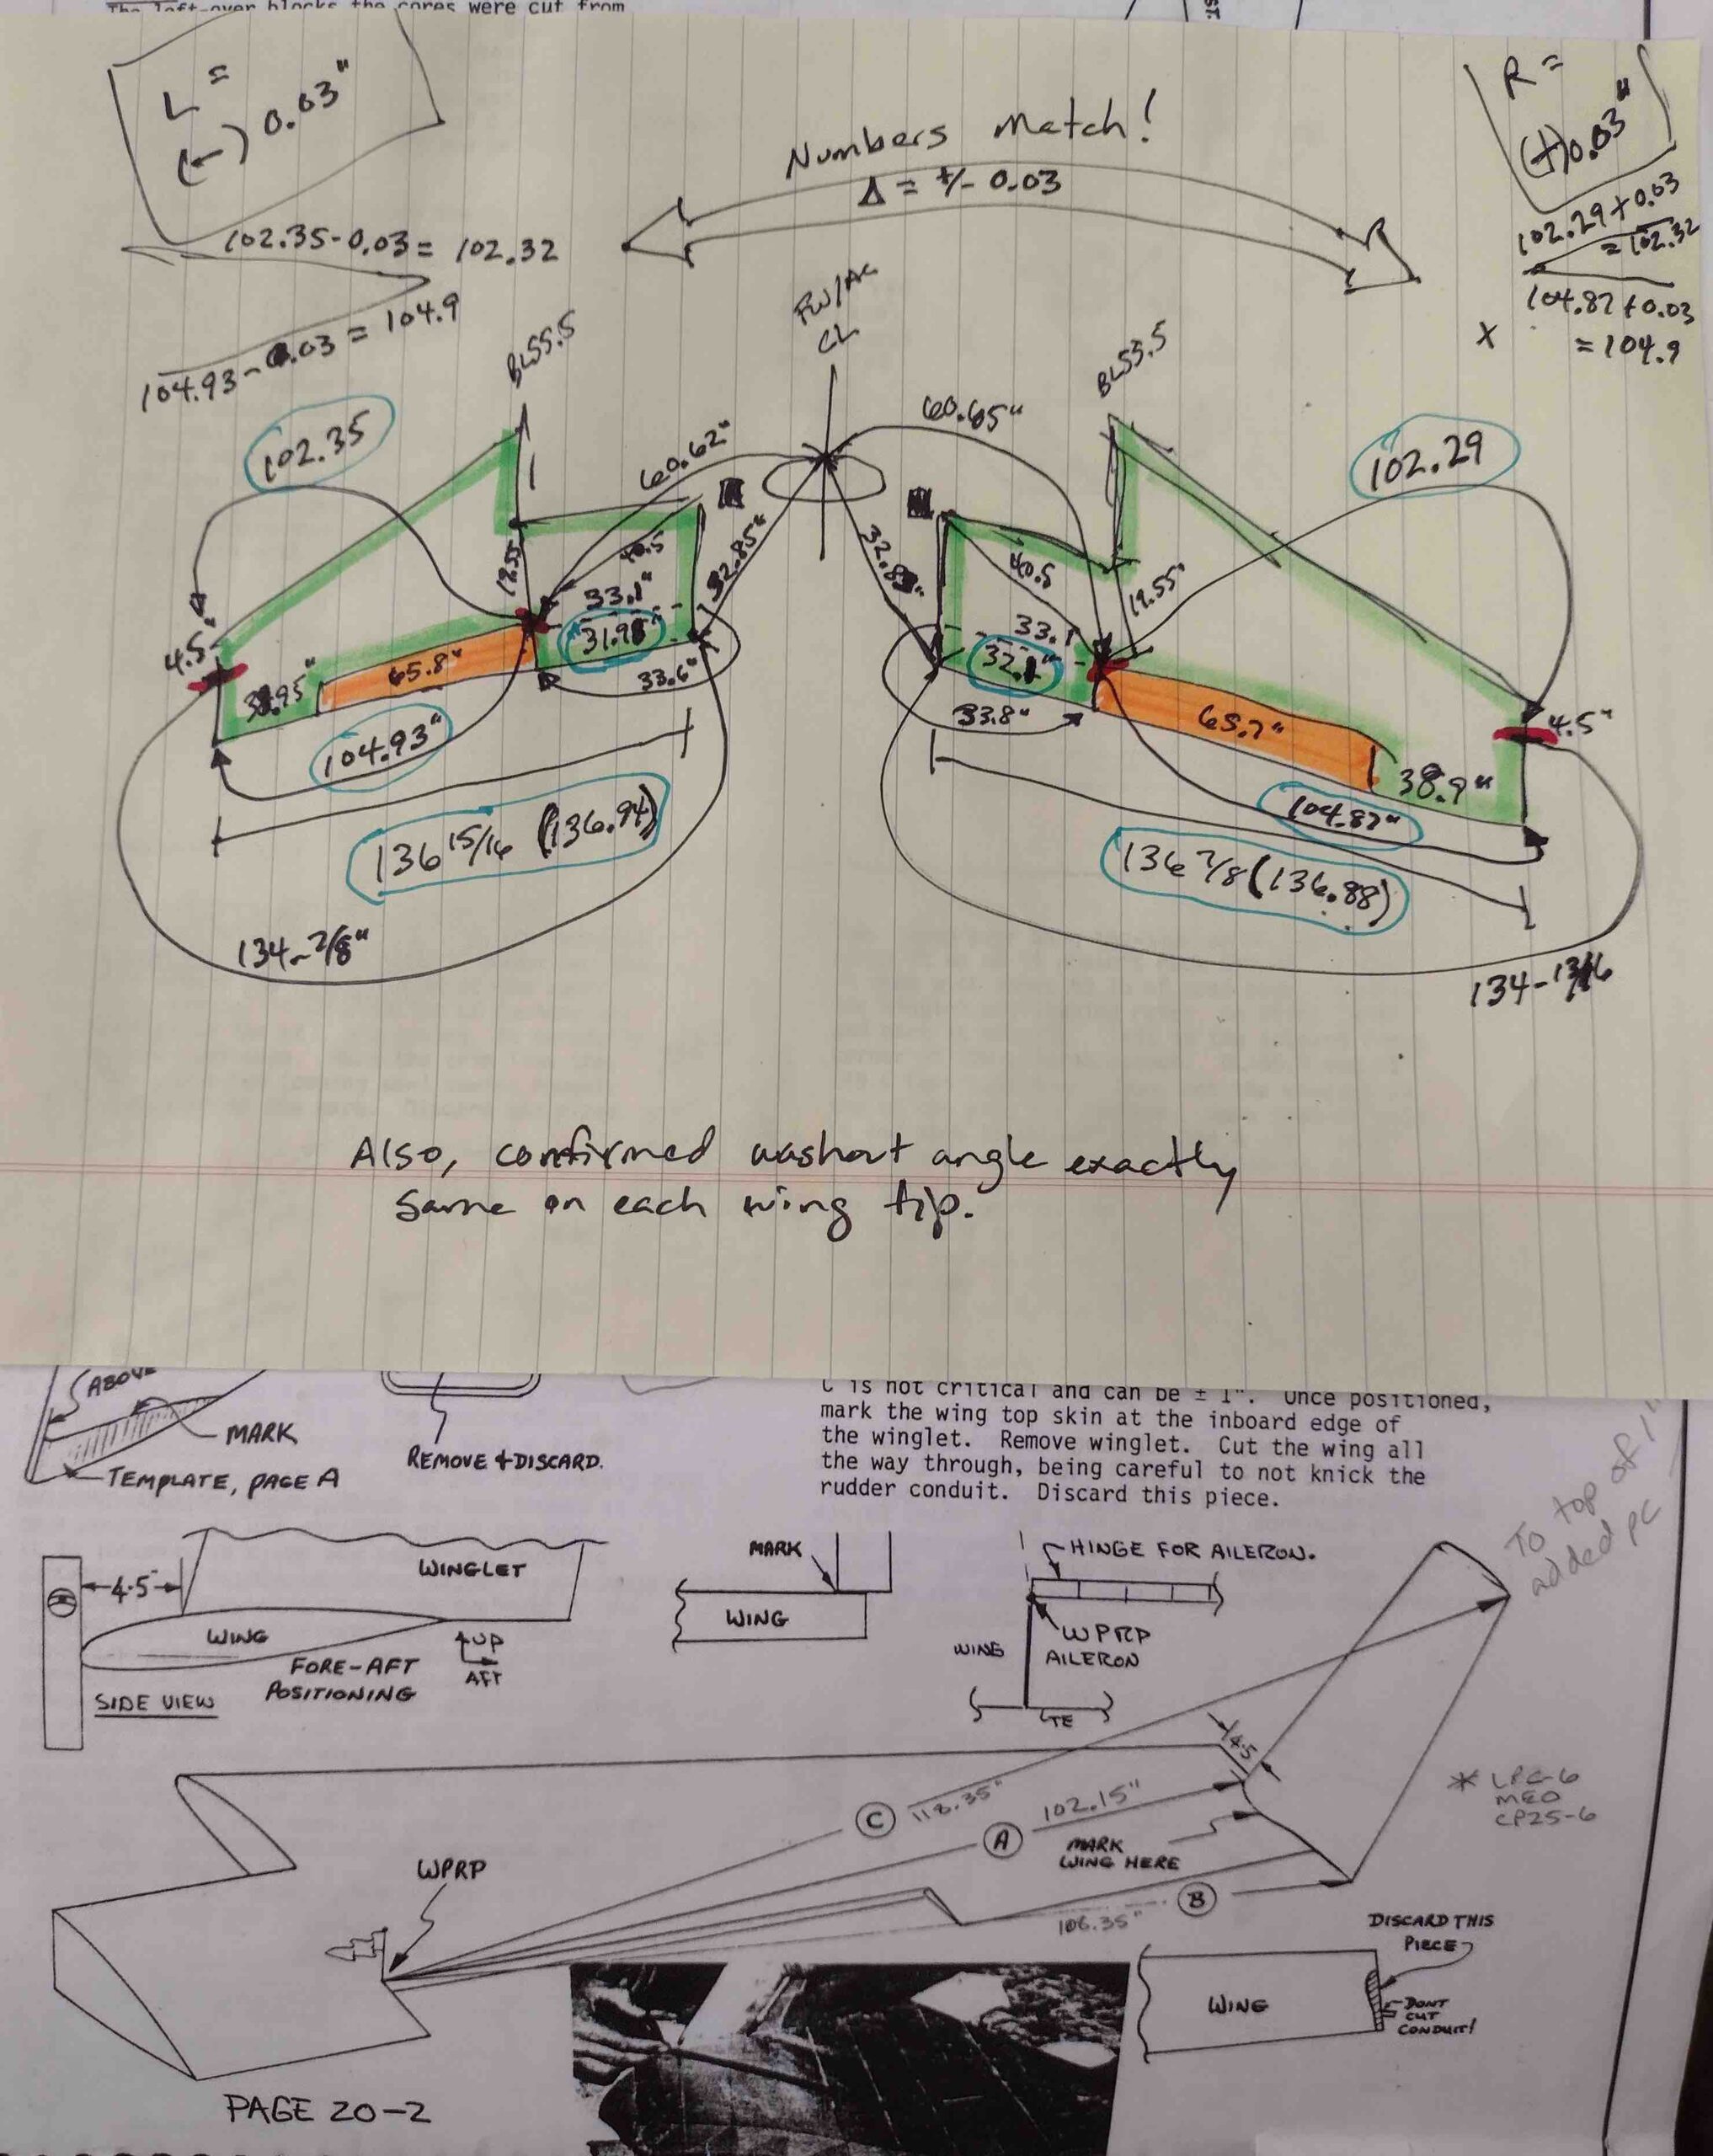 The left-over blocks the cores were cut from
ST.
L =
(-) 0.03"
R =
(+)0.03"
Numbers Match!
Δ = +/- 0.03
102.35-0.03 = 102.32
104.93-0.03 = 104.9
102.29+0.03
= 102.32
104.87+0.03
= 104.9
X
BL55.5
FW/AC
CL
BL55.5
102.35
60.62"
60.65"
102.29
19.55
40.5
33.1"
31.98"
32.85"
33.6"
40.5
19.55"
33.1
33.8"
4.5"
65.8"
104.93"
65.7"
4.5"
38.9"
104.87"
136 15/16 (136.94)
136 7/8 (136.88)
134-7/8"
134-13/16
Also, confirmed washout angle exactly
same on each wing tip.
ABOVE
MARK
TEMPLATE, PAGE A
REMOVE & DISCARD.
C is not critical and can be ± 1". Once positioned,
mark the wing top skin at the inboard edge of
the winglet. Remove winglet. Cut the wing all
the way through, being careful to not knick the
rudder conduit. Discard this piece.
To top of 1"
added pc
4.5"
WINGLET
WING
UP
AFT
FORE-AFT
POSITIONING
SIDE VIEW
MARK
WING
HINGE FOR AILERON.
WING
WPRP
AILERON
TE
4.5
C 118.35"
A 102.15"
MARK
WING HERE
B
106.35"
* LPC-6
MEO
CP25-6
WPRP
DISCARD THIS
PIECE
WING
DONT
CUT
CONDUIT!
PAGE 20-2